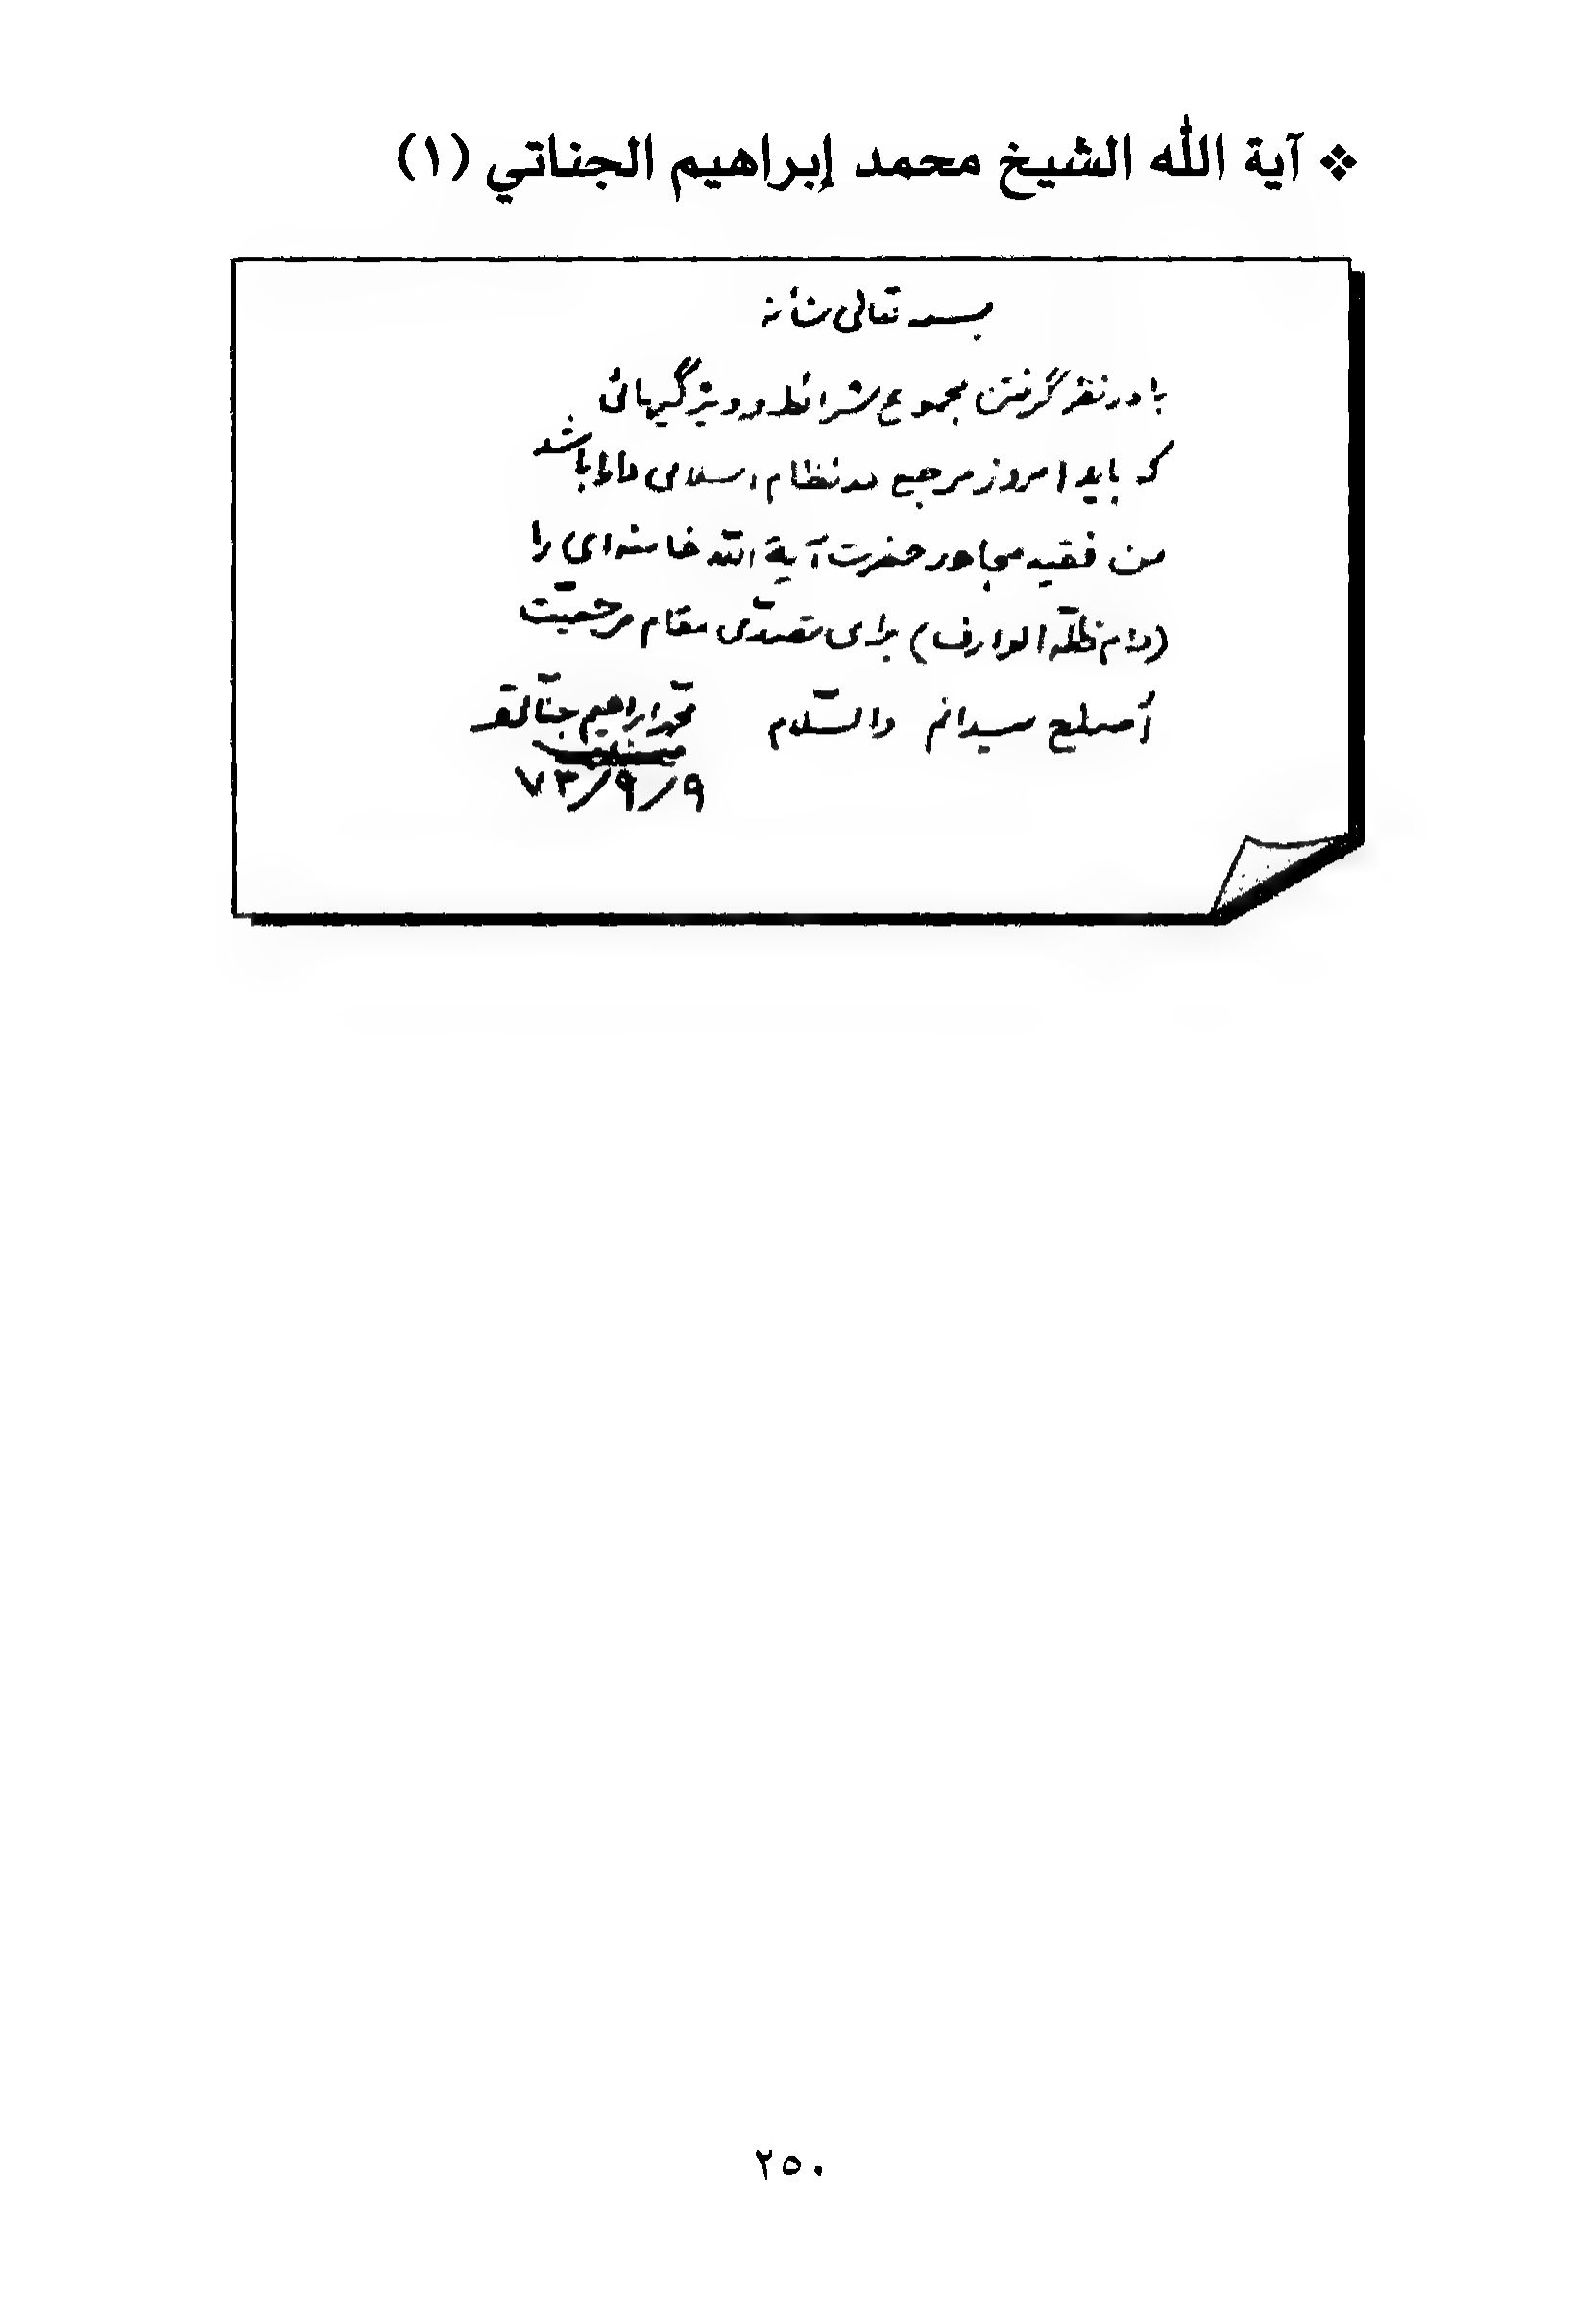 ❖ آية الله الشيخ محمد إبراهيم الجناتي (١)
بسمه تعالى شأنه
با در نظر گرفتن مجموع شرائط و ویژگیهائی
که باید امروز مرجع در نظام اسلامی دارا باشد
من فقیه مجاهد حضرت آیة الله خامنه‌ای را
(دام ظلّه الوارف) برای تصدّی مقام مرجعیّت
أصلح میدانم والسّلام محمّد ابراهیم جنّاتی
٧٣/٩/٩
٢٥٠